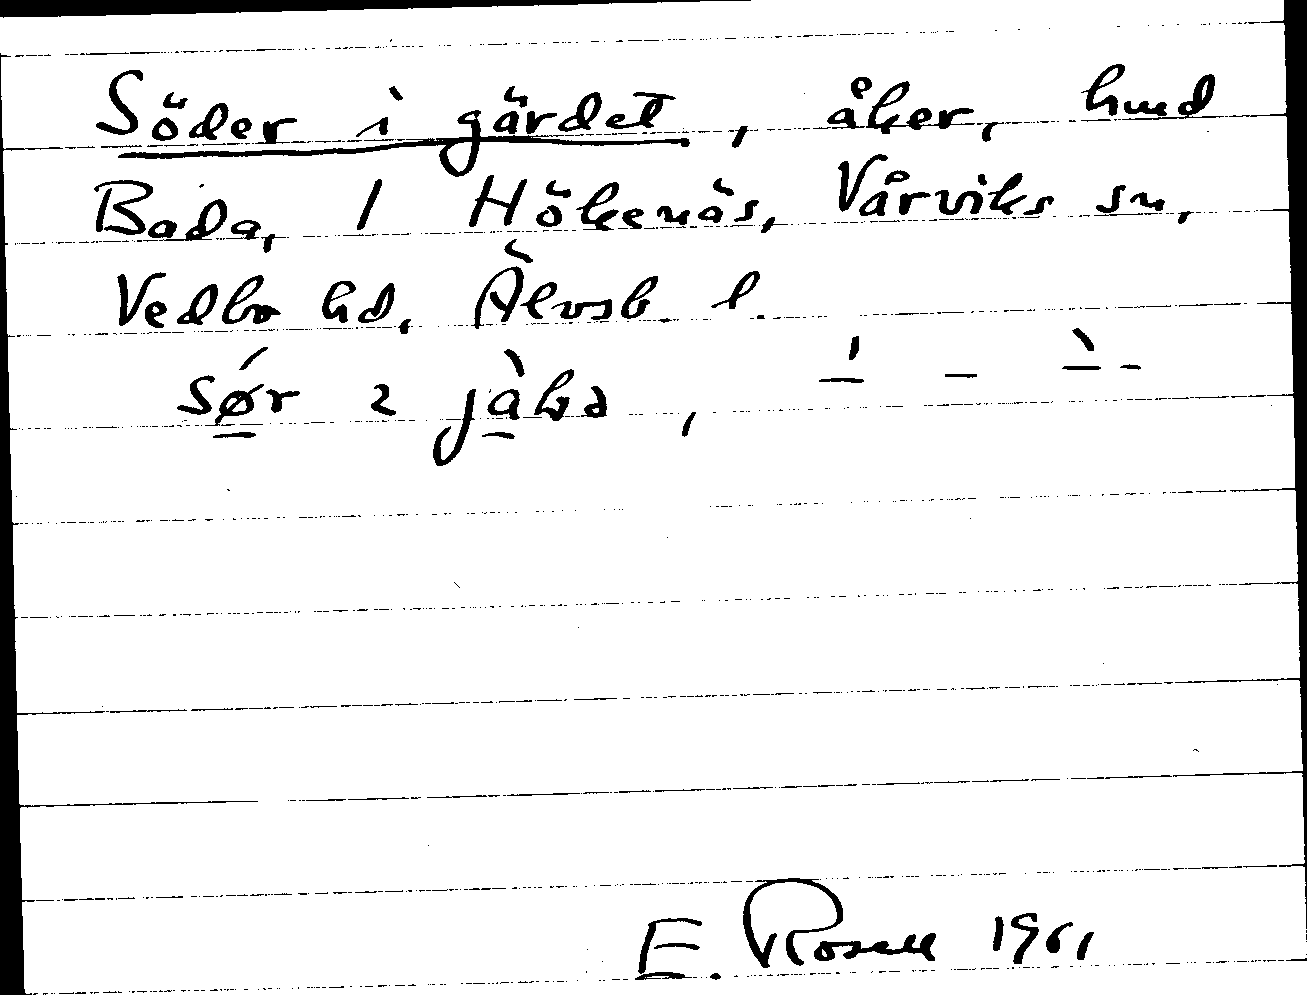 Söder i gärdet, åker, hmd
Bada, 1 Hökenäs, Vårviks sn,
Vedbo hd, Älvsb. l.
E. Rosell 1961